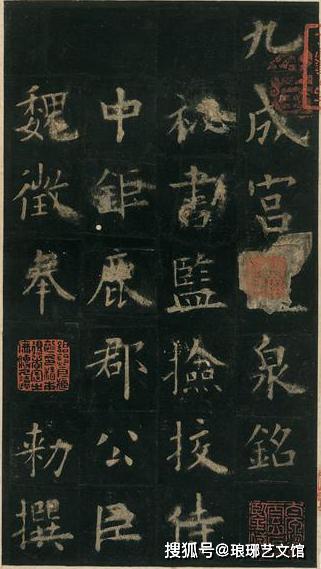 九成宮泉銘
祕書監撿挍侍
中鉅鹿郡公臣
魏徵奉
勅撰
搜狐号@琅琊艺文馆